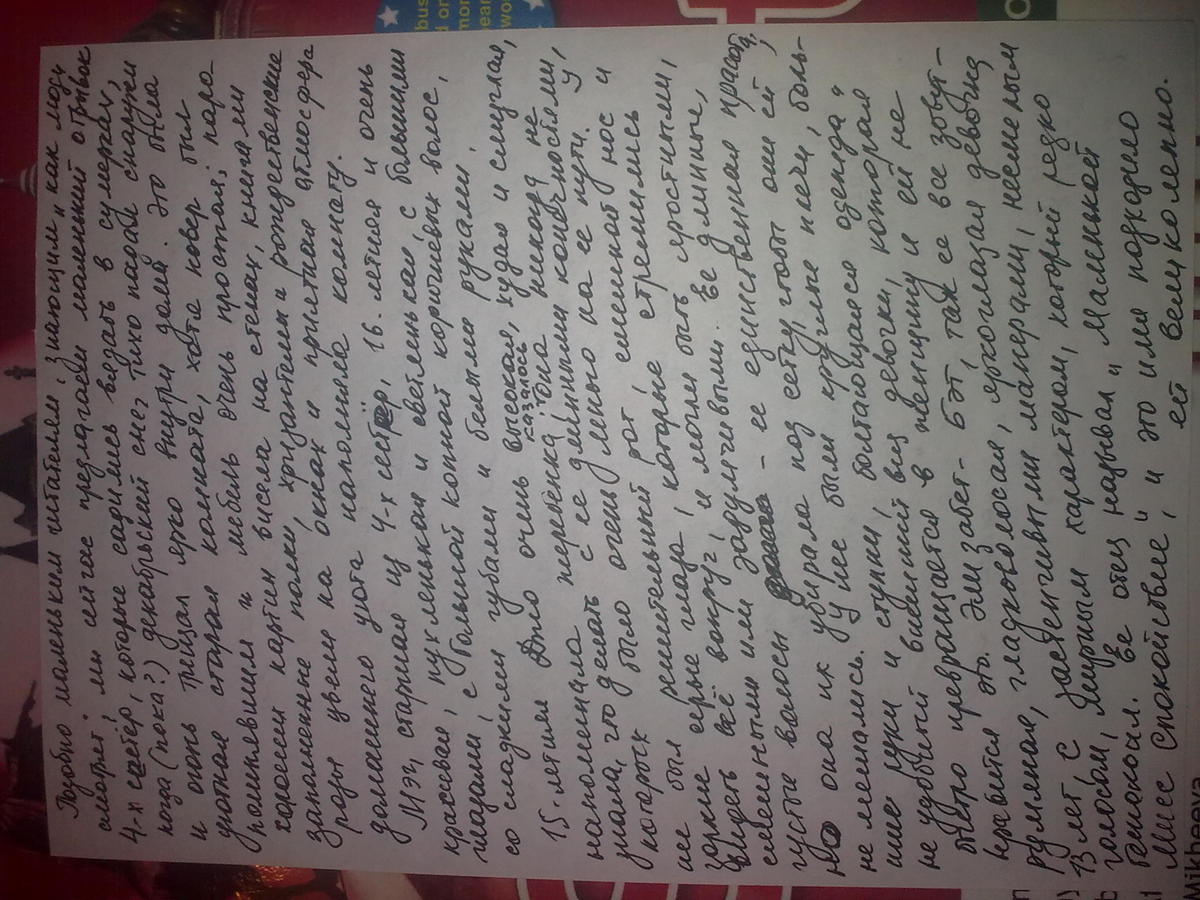 Подобно маленьким читателям, знающим, как люди
смотрят, мы сейчас предлагаем маленький отрывок
4-х сестёр, которые садились вязать в сумерах,
когда (пока?) декабрьский снег тихо падал снаружи
и огонь трещал ярко внутри дома. Это была
уютная старая комната, хотя ковер был
и мебель очень простая; пара-
хороших картин висела на стенах, книгами
заполненные полки, хризантемы и рождественские
розы цвели на окнах и приятная атмосфера
домашнего уюта наполняла комнату.
Мэг, старшая из 4-х сестёр, 16-летняя и очень
красивая, пухленькая и светленькая, с большими
глазами, с большой копной коричневых волос,
со сладкими губами и белыми руками.
15-летняя Джо очень высокая, худая и смуглая,
напоминала жеребенка; она никогда не
казалось
знала, что делать с ее длинными конечностями,
которых было очень много на ее пути. У
нее был решительный рот, смешной нос и
зоркие серые глаза, которые стремились
видеть всё вокруг, и могли быть яростными,
смешными или задумчивыми. Ее длинные,
густые волосы - ее единственная красота,
но она их убирала под сетку, чтобы они ей
не мешались. У нее были круглые плечи, боль-
шие руки и ступни, болтающаяся одежда и
неудобный вид девочки, которая
быстро превращается в женщину и ей не
нравится это. Элизабет - Бэт, так ее все зовут -
румяная, гладковолосая, яркоглазая девочка
13 лет с застенчивыми манерами, несмелым
голосом, мирным характером, который редко
Ее отец называл "Маленькой
Мисс Спокойствие", и это имя подходило
ей великолепно.